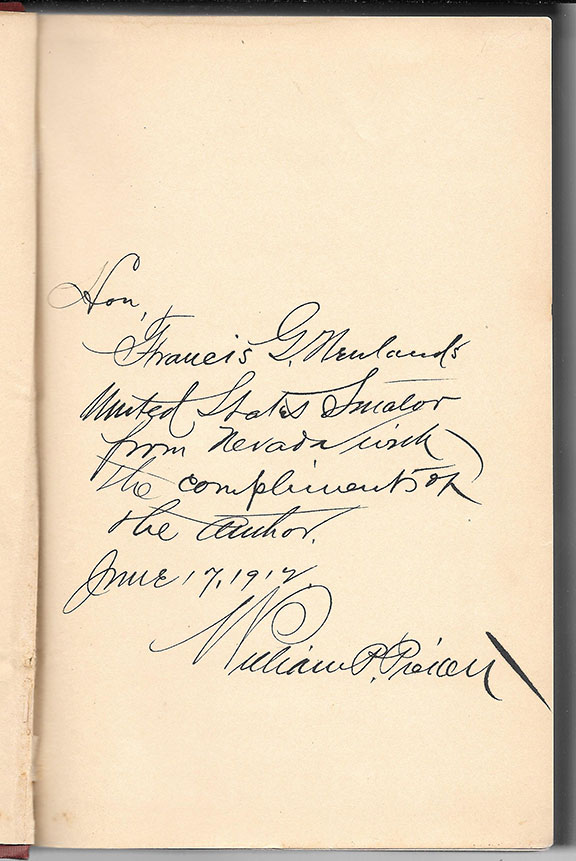 Hon,
Francis G. Newlands
United States Senator
from Nevada with
the compliments of
the author.
June 17, 1912.
William P.